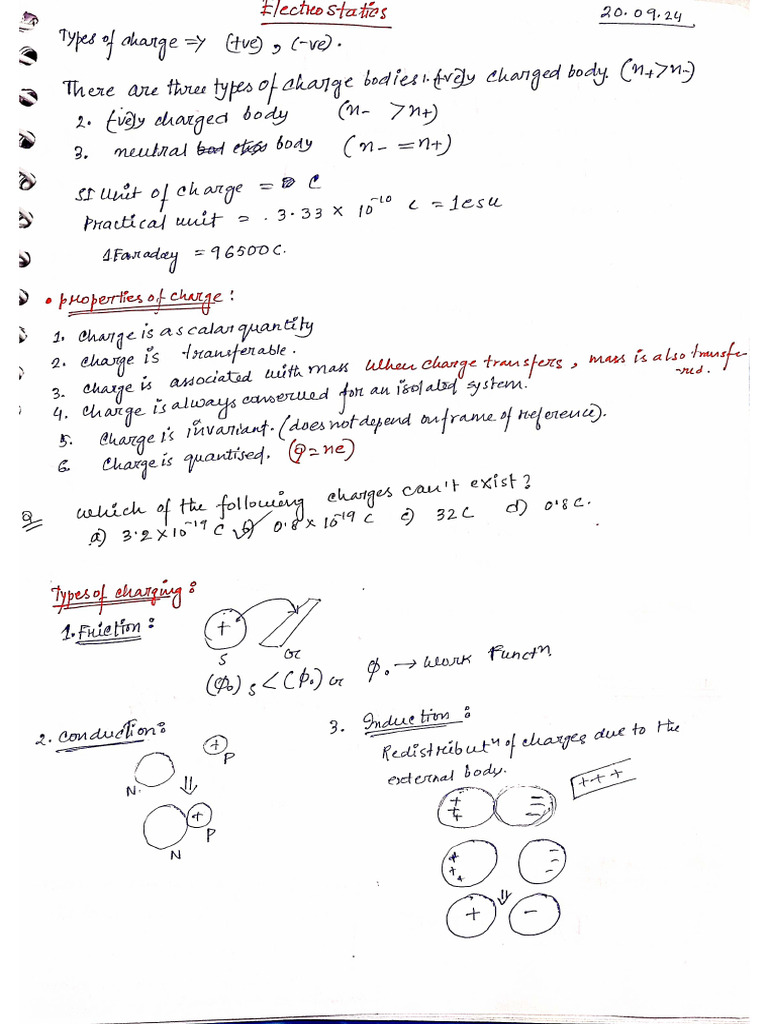 Electrostatics
20.09.24
Types of charge => (+ve), (-ve).
There are three types of charge bodies 1. (+ve)ly charged body. (n+>n-)
2. (-ve)ly charged body (n- >n+)
3. neutral body (n- =n+)
SI Unit of charge = C
Practical unit = .3.33 × 10⁻¹⁰ C = 1esu
1Faraday = 96500C.
• Properties of charge:
1. Charge is a scalar quantity
2. charge is transferable.
3. charge is associated with mass When charge transfers, mass is also transfe-
-red.
4. Charge is always conserved for an isolated system.
5. Charge is invariant. (does not depend on frame of reference).
6. Charge is quantised. (Q=ne)
Q Which of the following charges can't exist?
a) 3.2×10⁻¹⁹ C b) 0.8×10⁻¹⁹ C c) 32C d) 0.8C.
Types of charging:
1. Friction:
+
S Or
(ϕ₀)s <(ϕ₀) or ϕ₀ → Work Functⁿ.
2. Conduction:
3. Induction:
Redistributⁿ of charges due to the
external body.
+
P
N.
+++
+
P
N
+ + + - - -
+ + + - - -
+ -